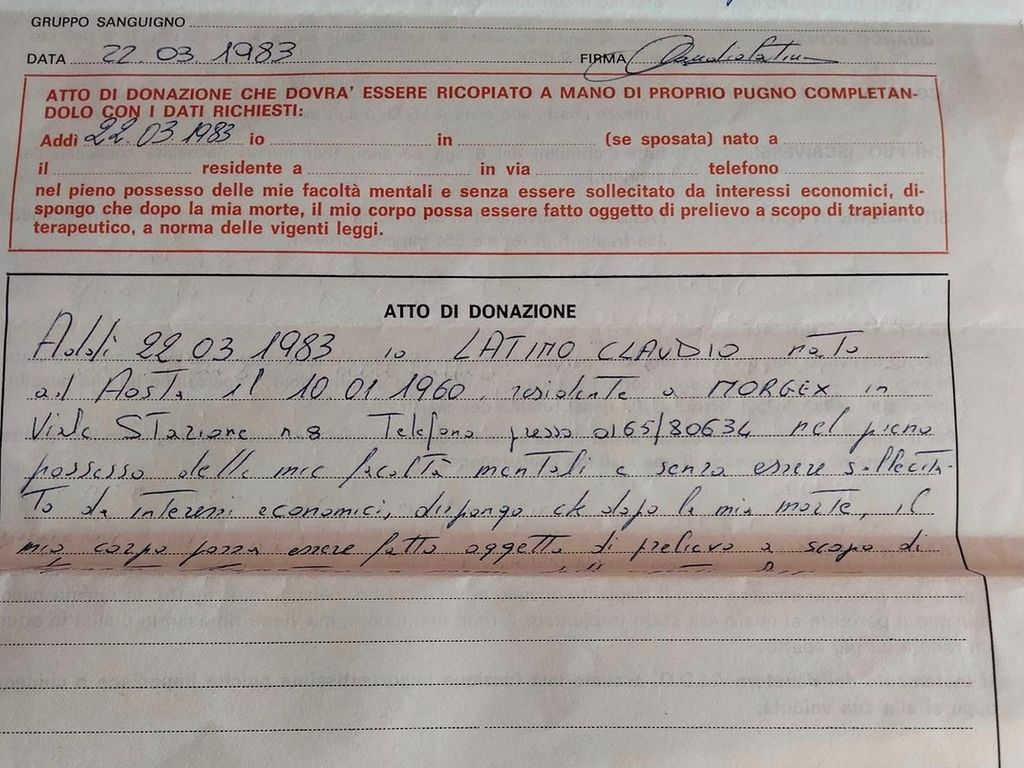 GRUPPO SANGUIGNO
DATA 22.03.1983 FIRMA
ATTO DI DONAZIONE CHE DOVRA' ESSERE RICOPIATO A MANO DI PROPRIO PUGNO COMPLETAN-
DOLO CON I DATI RICHIESTI:
Addì 22.03.1983 io in (se sposata) nato a
il residente a in via telefono
nel pieno possesso delle mie facoltà mentali e senza essere sollecitato da interessi economici, di-
spongo che dopo la mia morte, il mio corpo possa essere fatto oggetto di prelievo a scopo di trapianto
terapeutico, a norma delle vigenti leggi.
ATTO DI DONAZIONE
Addì 22.03 1983 io LATINO CLAUDIO nato
ad Aosta il 10.01.1960, residente a MORGEX in
Viale Stazione n.8 Telefono presso 0165/80634 nel pieno
possesso delle mie facoltà mentali e senza essere sollecita-
to da interessi economici, dispongo che dopo la mia morte, il
mio corpo possa essere fatto oggetto di prelievo a scopo di